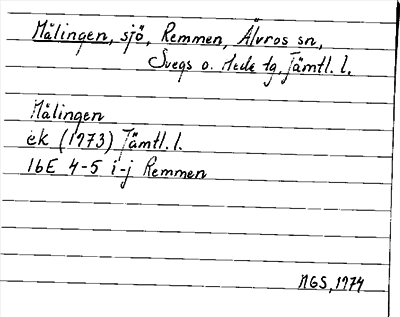 Målingen, sjö, Remmen, Älvros sn,
Svegs o. Hede tg, Jämtl. l.
Målingen
ek (1973) Jämtl. l.
16E 4-5 i-j Remmen
NGS, 1974